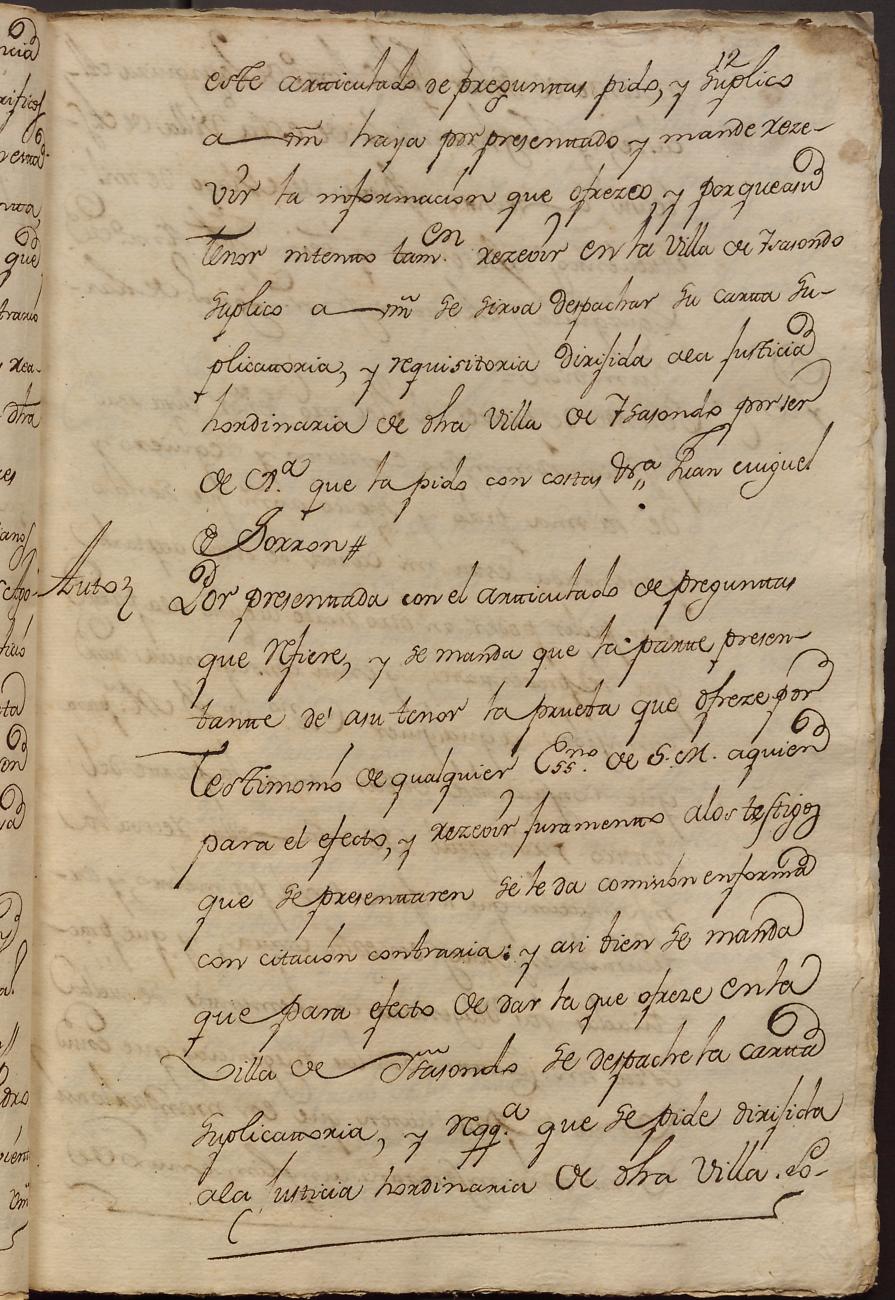 12
este articulado de preguntas pido, y Suplico
a Vm̃ haya por presentado y mande reze-
vir la informacion que ofrezco, y porque asu
Tenor intento tamᵉⁿ. rezevir en la Villa de Ysasondo
Suplico a Vm̃ se sirva despachar su carta Su-
plicatoria, y requisitoria dirijida ala justicia
hordinaria de dha Villa de Ysasondo por ser
de Jᵃ. que la pido con costas &ᵃ Juan Miguel
de Borron#
Auto
Por presentada con el articulado de preguntas
que refiere, y se manda que la parte presen-
tante de' asu tenor la prueba que ofreze por
Testimonio de qualquier Essⁿᵒ. de S. M. aquien
para el efecto, y rezevir juramento alos testigos
que se presentaren se le da comision en forma
con citacion contraria: y asi bien se manda
que para efecto de dar la que ofreze en la
Villa de Ysasondo se despache la carta
Suplicatoria, y reqqᵃ. que se pide dirijida
ala Justicia hordinaria de dha Villa. Lo-